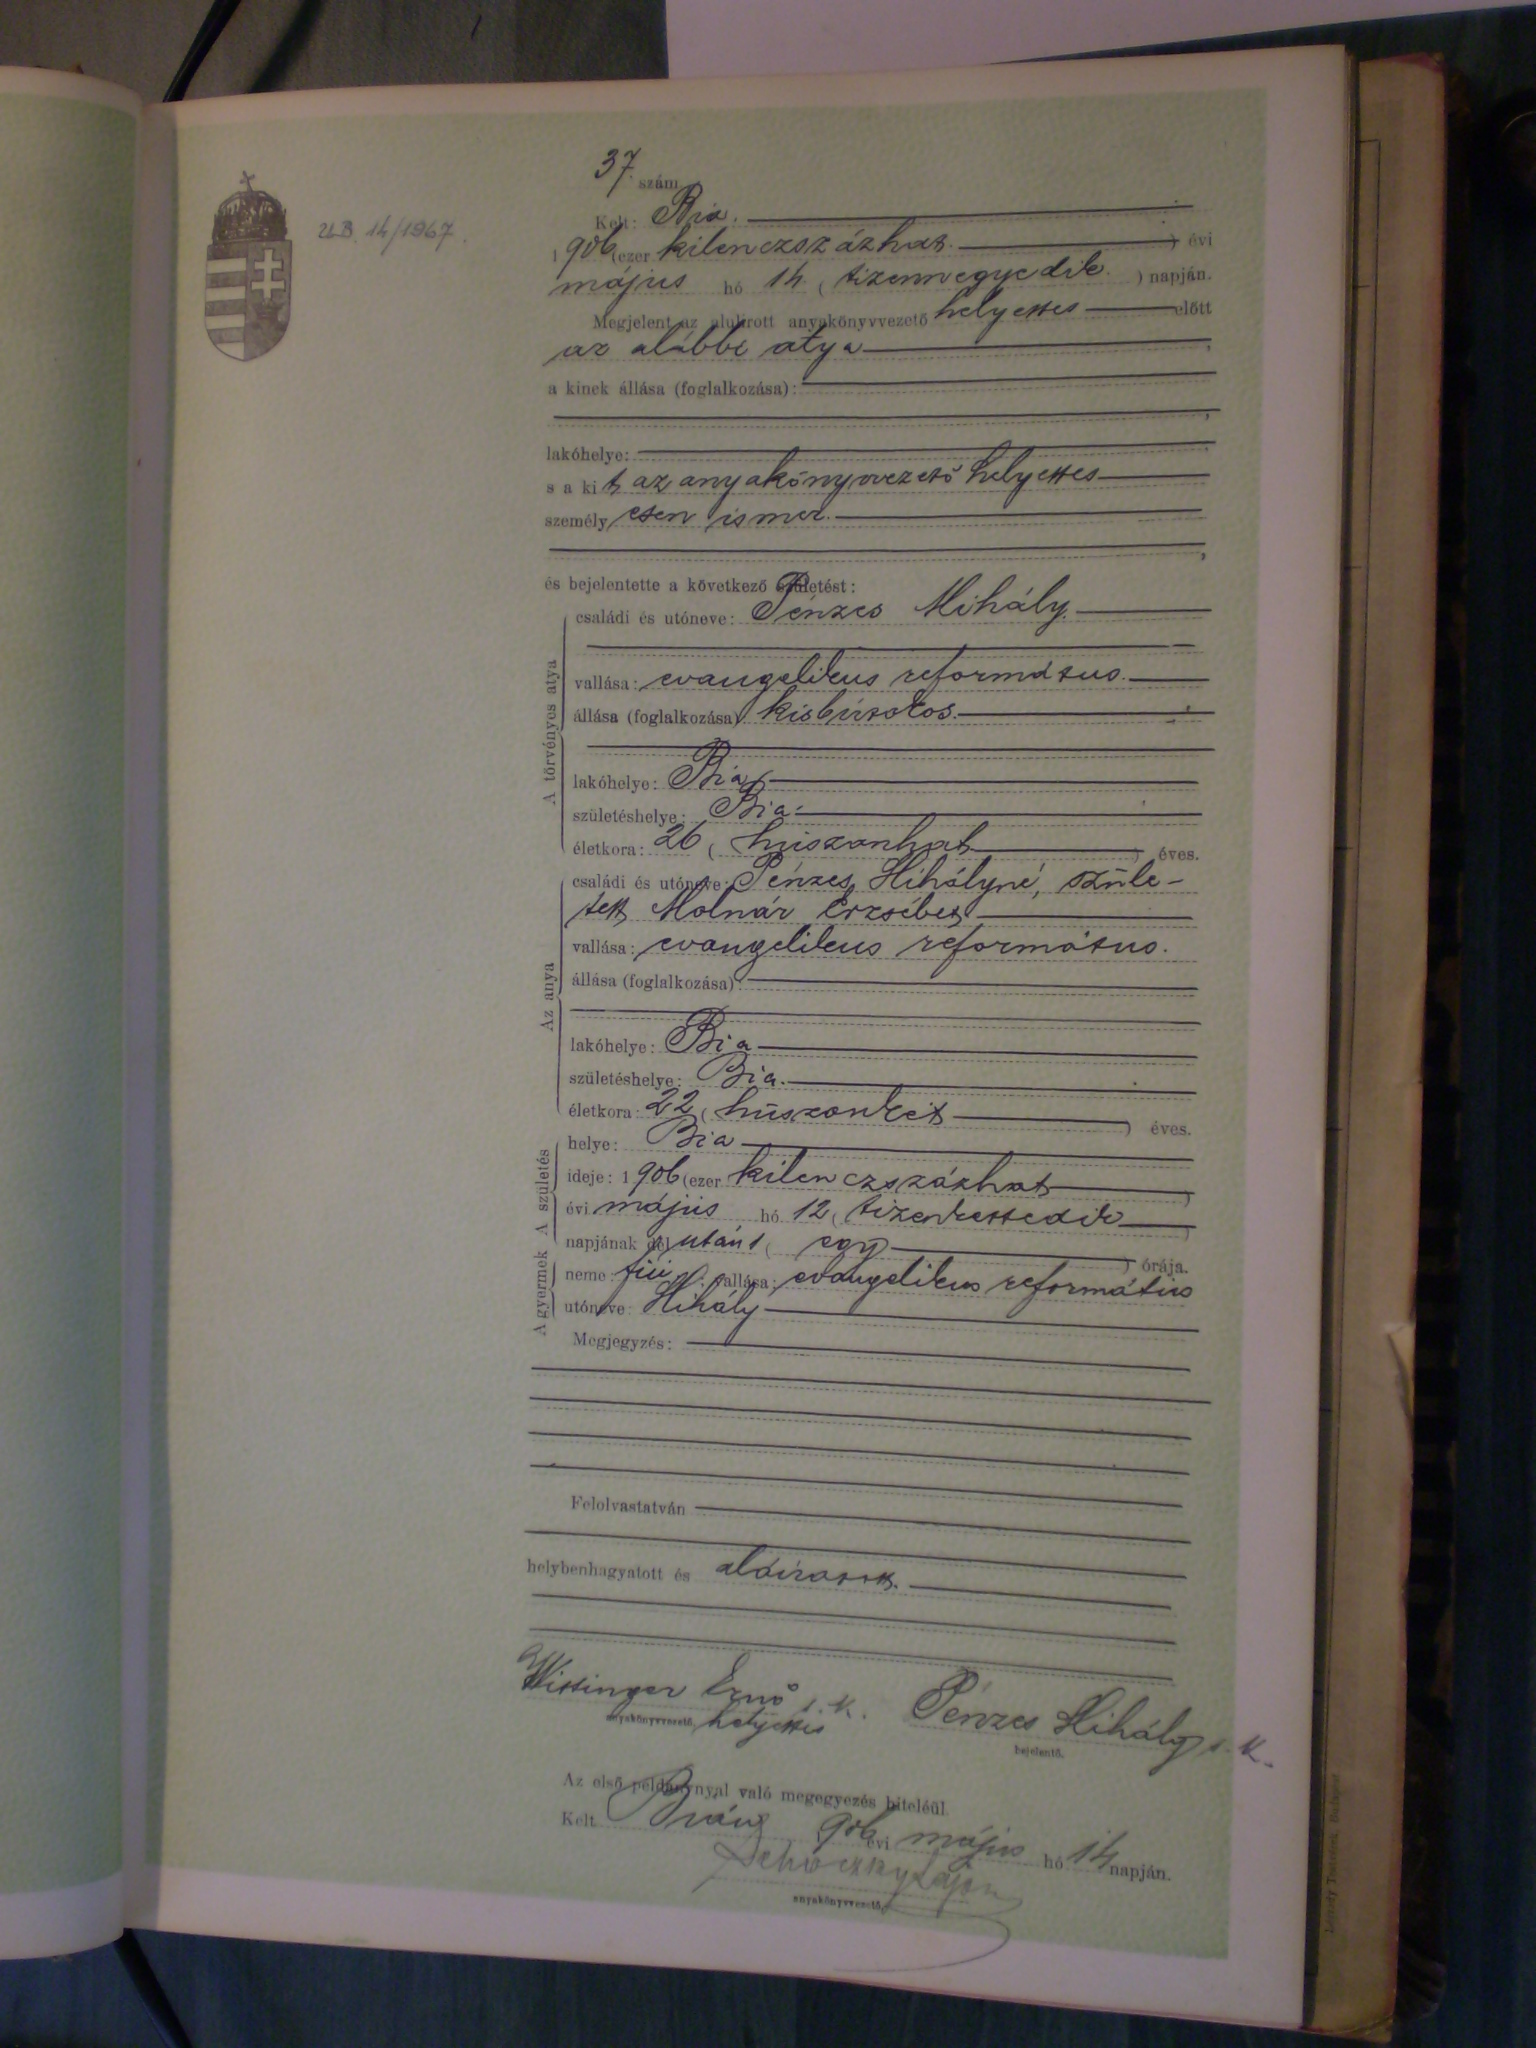 37. szám
UB. 14/1967.
Kelt: Bia.
1906 (ezer kilenczszázhat. ) évi
május hó 14 ( tizennegyedik. ) napján.
Megjelent az alulirott anyakönyvvezető helyettes előtt
az alábbi atya ,
a kinek állása (foglalkozása):
lakóhelye:
s a kit az anyakönyvvezető helyettes
személyesen ismer.
és bejelentette a következő születést:
A törvényes atya
családi és utóneve: Pénzes Mihály.
vallása: evangelikus református.
állása (foglalkozása): kisbirtokos.
lakóhelye: Bia,
születéshelye: Bia.
életkora: 26 ( huszonhat ) éves.
Az anya
családi és utóneve: Pénzes Mihályné, szüle-
tett Molnár Erzsébet
vallása: evangelikus református.
állása (foglalkozása):
lakóhelye: Bia
születéshelye: Bia.
életkora: 22 ( húszonkét ) éves.
A születés
helye: Bia
ideje: 1906 (ezer kilenczszázhat )
évi május hó 12 ( tizenkettedik )
napjának délután 1 ( egy ) órája.
A gyermek
neme: fiú vallása: evangelikus református
utóneve: Mihály
Megjegyzés:
Felolvastatván
helybenhagyatott és aláiratott.
Wissinger Ernő s. k. Pénzes Mihály s. k.
anyakönyvvezető helyettes bejelentő.
Az első példánynyal való megegyezés hiteléül.
Kelt Bián, 906 évi május hó 14 napján.
Lajos
anyakönyvvezető.